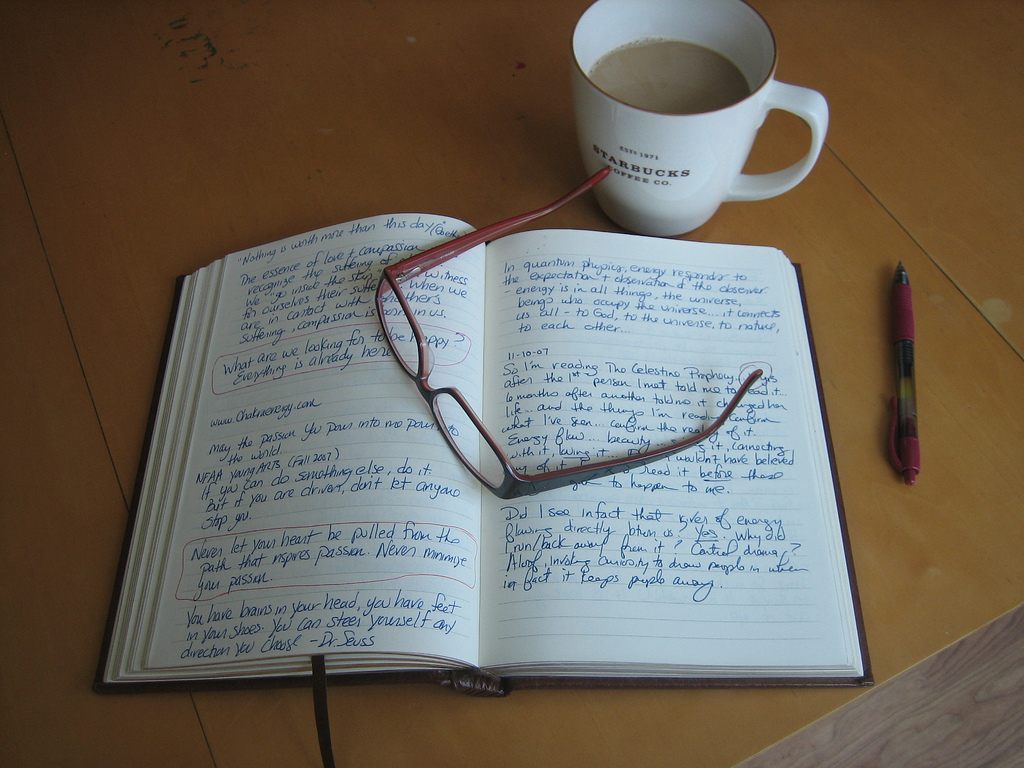 "Nothing is worth more than this day" (Goethe
The essence of love & compassion
recognize the suffering of
We "go inside the skin witness
for ourselves their suffe when we
are in contact with another's
suffering, compassion is born in us.
What are we looking for to be happy?
Everything is already here
www.Chakraenergy.com
May the passion you pour into me pour to
the world...
NFAA young ARTS (Fall 2007)
If you can do something else, do it.
But if you are driven, don't let anyone
stop you.
Never let your heart be pulled from the
path that inspires passion. Never minimize
your passion.
You have brains in your head, you have feet
in your shoes. You can steer yourself any
direction you choose - Dr. Seuss
In quantum physics, energy responds to
the expectation & observation of the observer
energy is in all things, the universe,
beings who occupy the universe.... it connects
us all - to God, to the universe, to nature,
to each other...
11-10-07
So I'm reading The Celestine Prophecy, yrs
after the 1st person I met told me to read it...
6 months after another told me it changed her
life... and the things I'm reading confirm
what I've seen... confirm the reality of it.
Energy flow.... beauty... it, connecting
with it, wouldn't have believed
of it read it before these
to happen to me.
Did I see in fact that of energy
flowing directly between us? Yes. Why did
I run/back away from it? Control drama?
Aloof, invoking curiosity to draw people in when
in fact it keeps people away.
ESTD 1971
STARBUCKS
COFFEE CO.